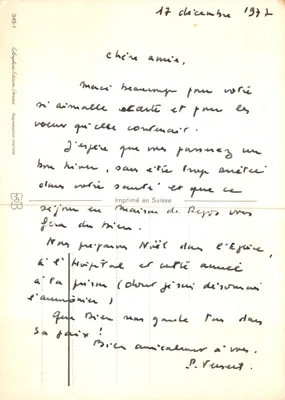 17 décembre 1972
Chère amie,
Merci beaucoup pour votre
si aimable carte et pour les
voeux qu'elle contenait.
J'espère que vous passerez un
bon hiver, sans être trop arrêtée
dans votre santé et que ce
séjour en Maison de Repos vous
fera du bien.
Nous préparons Noël dans l'Eglise,
à l'hôpital et cette année
à la prison (dont je suis désormais
l'aumônier)
Que Dieu nous garde tous dans
sa paix !
Bien amicalement à vous.
P.
345-1
Reproduction interdite
Imprimé en Suisse